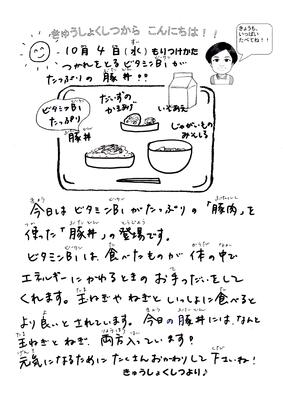 きゅうしょくしつから こんにちは!!
きょうも、
いっぱい
たべてね!!
10月4日(水)もりつけかた
つかれをとるビタミンB1が
たっぷりの豚丼!!
ビタミンB1
たっぷり
豚丼
だいずの
かきあげ
じゃがいもの
みそしる
今日はビタミンB1がたっぷりの「豚肉」を
使った「豚丼」の登場です。
ビタミンB1は、食べたものが体の中で
エネルギーにかわるときのお手つだいをして
くれます。玉ねぎやねぎといっしょに食べると
より良いとされています。今日の豚丼には、なんと
玉ねぎとねぎ、両方入っています!
元気になるためにたくさんおかわりして下さいね!
きゅうしょくしつより♪